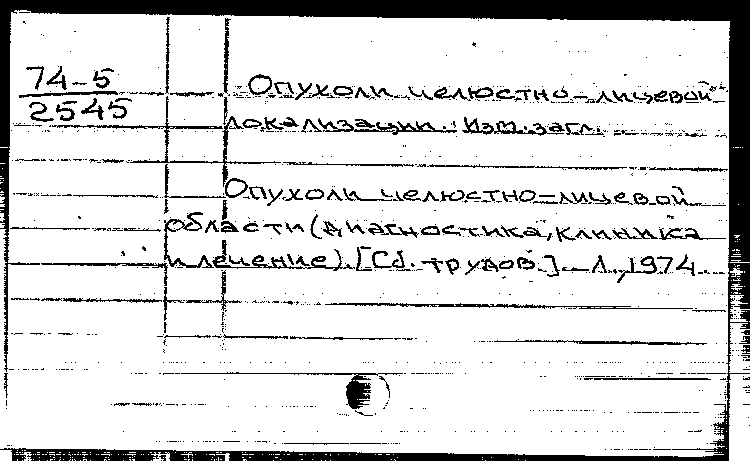 74-5
2545
Опухоли челюстно-лицевой
локализации. Изм.загл.
Опухоли челюстно-лицевой
области (диагностика, клиника
и лечение). [Сб. трудов.] Л., 1974.